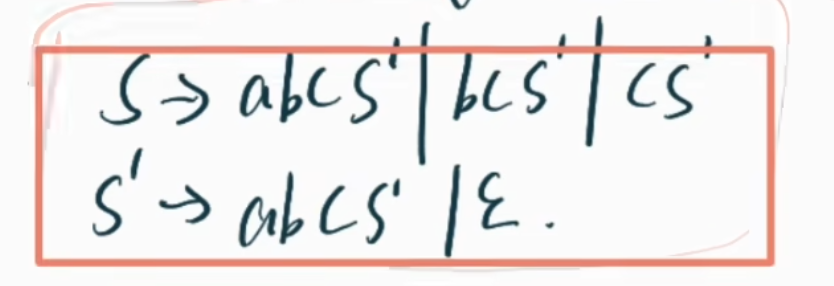 S → abcS' | bcS' | cS'
S' → abcS' | ε.